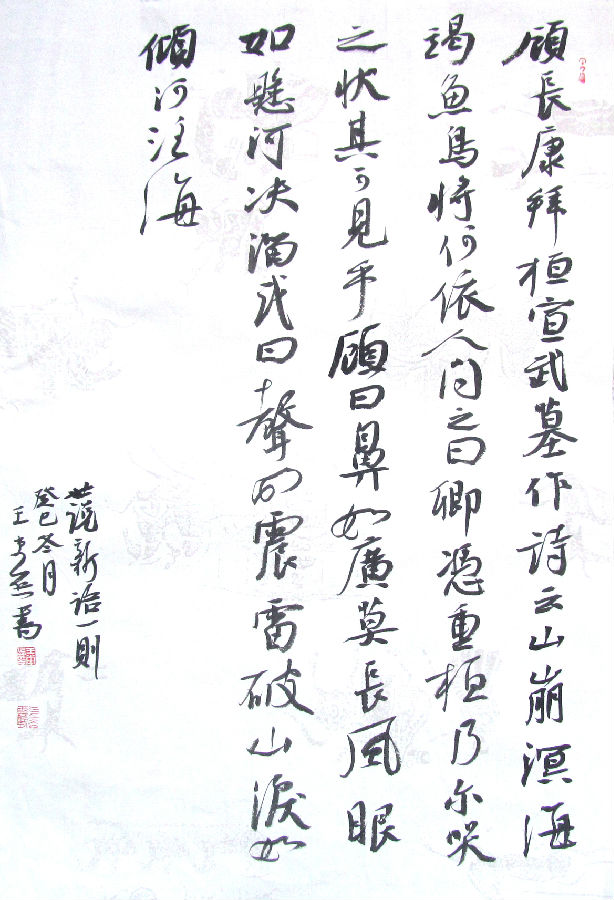 顧長康拜桓宣武墓作詩云山崩溟海
竭魚鳥將何依人问之曰卿憑重桓乃尔哭
之狀其可見乎顧曰鼻如廣莫長風眼
如懸河决溜或曰聲如震雷破山淚如
傾河注海
世說新語一則
癸巳冬月
王 寫